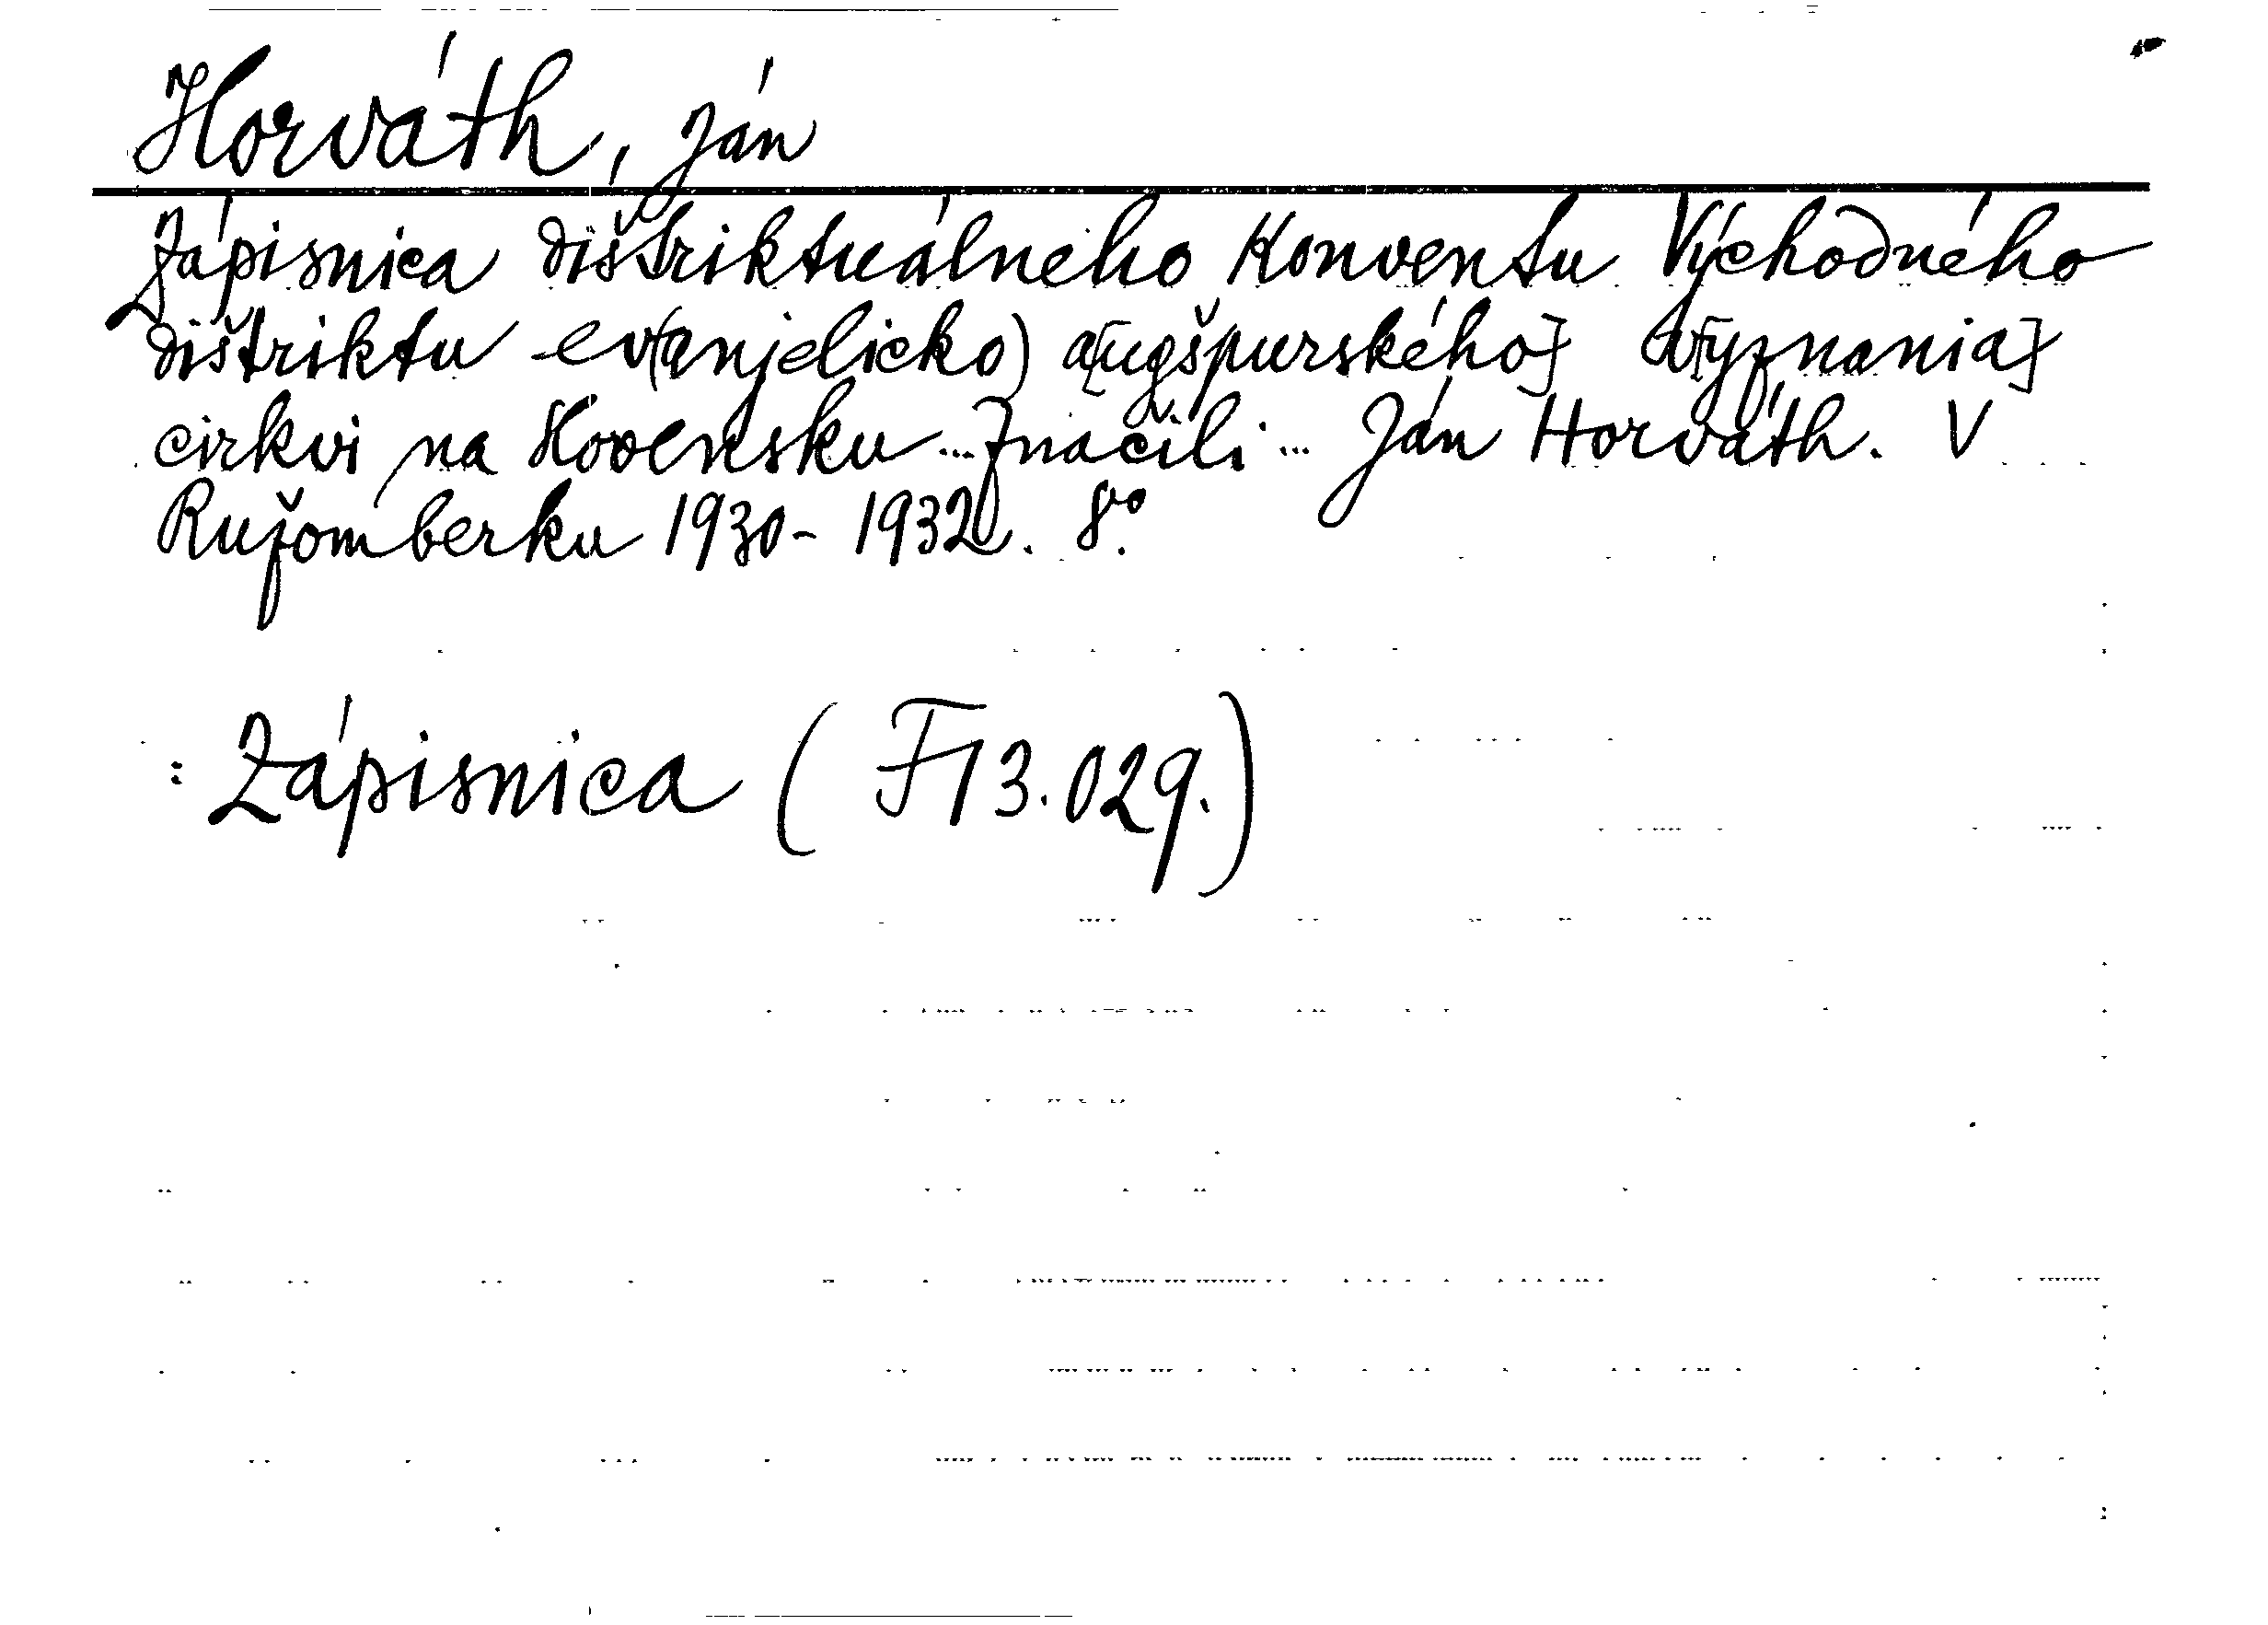 Horváth, Ján
Zápisnica dištriktuálneho Konventu Východného
dištriktu ev(anjelicko) a[ugšpurského] v[yznania]
cirkvi na Slovensku ... Značili ... Ján Horváth. V
Ružomberku 1930-1932. 8°.
: Zápisnica (F13.029.)